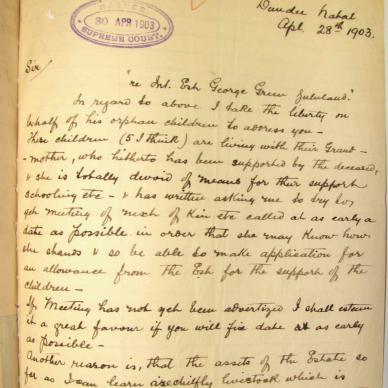 30 APR 1903
SUPREME COURT
Dundee Natal
Apl. 28th 1903.
Sir
"re Int. Esh George Green Zululand."
In regard to above I take the liberty on
behalf of his orphan children to address you —
These children (5 I think) are living with their Grand-
-mother, who hitherto has been supported by the deceased,
& she is totally devoid of means for their support
schooling etc — & has written asking me to try to
get meeting of next of Kin etc called at as early a
date as possible in order that she may know how
she stands & so be able to make application for
an allowance from the Est for the support of the
children —
If Meeting has not yet been advertized I shall esteem
it a great favour if you will fix date at as early
as possible —
Another reason is, that the assets of the Estate so
far as I can learn are chiefly livestock which is